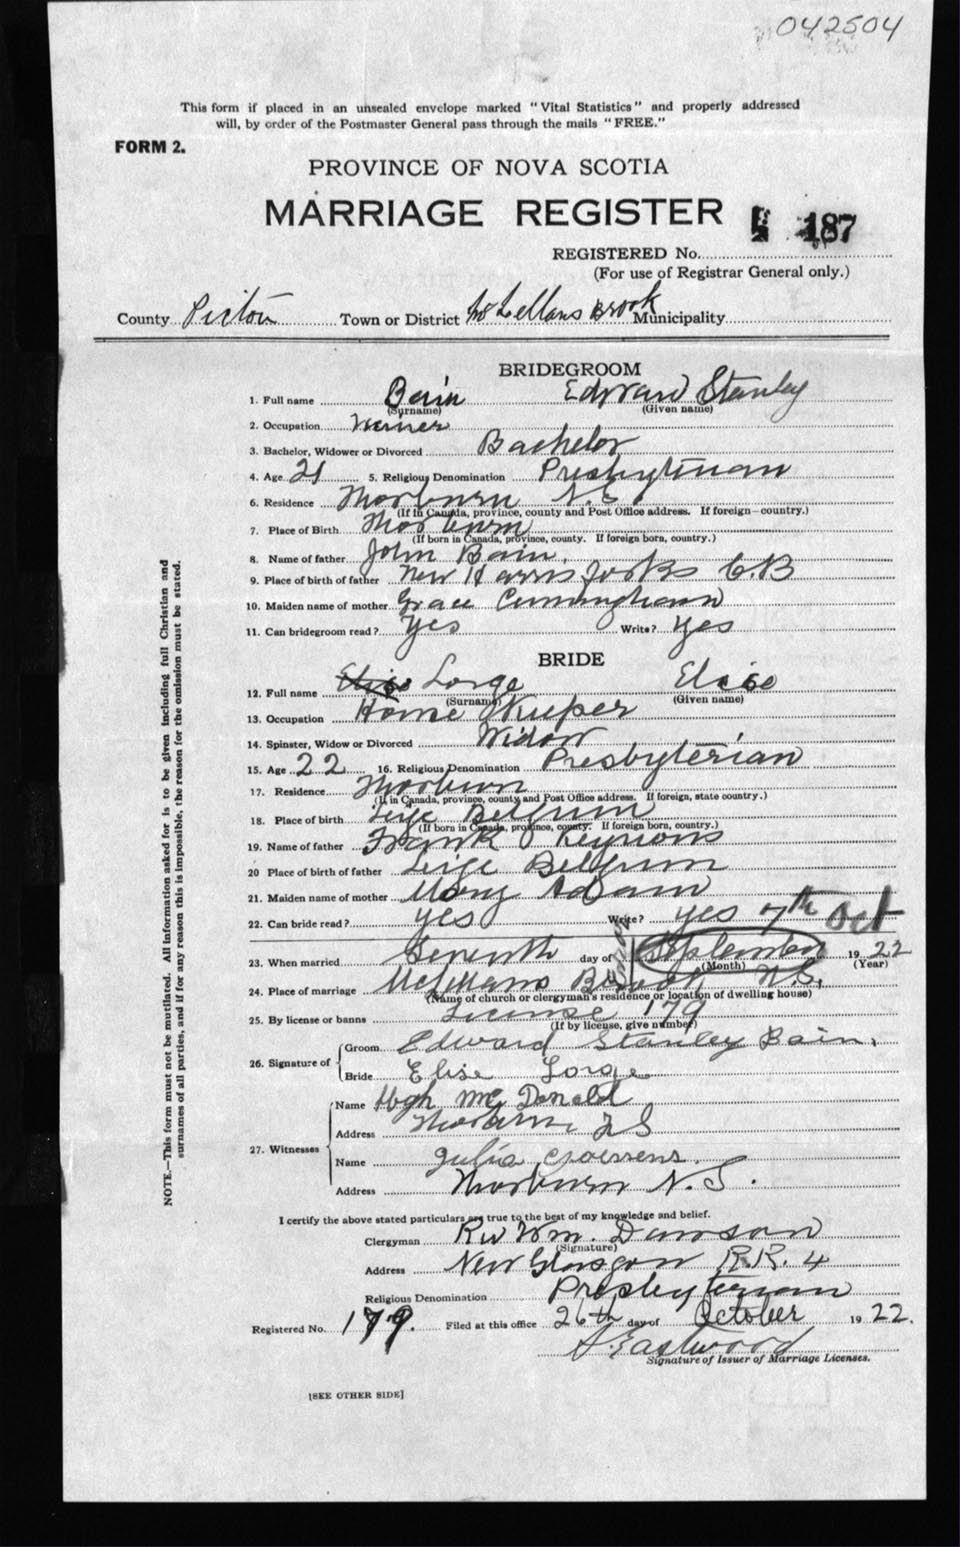 042504
This form if placed in an unsealed envelope marked "Vital Statistics" and properly addressed
will, by order of the Postmaster General pass through the mails "FREE."
FORM 2.
PROVINCE OF NOVA SCOTIA
MARRIAGE REGISTER 187
REGISTERED No.
(For use of Registrar General only.)
County Pictou Town or District McLellans Brook Municipality
BRIDEGROOM
1. Full name Bain Edward Stanley
(Surname) (Given name)
2. Occupation
3. Bachelor, Widower or Divorced Bachelor
4. Age 21 5. Religious Denomination Presbyterian
6. Residence Thorburn N.S
(If in Canada, province, county and Post Office address. If foreign—country.)
7. Place of Birth Thorburn
(If born in Canada, province, county. If foreign born, country.)
8. Name of father John Bain
9. Place of birth of father New Harris Forks C.B
10. Maiden name of mother Grace Cunningham
11. Can bridegroom read? Yes Write? Yes
BRIDE
12. Full name Elise Lorge Elsise
(Surname) (Given name)
13. Occupation Home Keeper
14. Spinster, Widow or Divorced Widow
15. Age 22 16. Religious Denomination Presbyterian
17. Residence Thorburn
(If in Canada, province, county and Post Office address. If foreign, state country.)
18. Place of birth Leige Belgium
(If born in Canada, province, county. If foreign born, country.)
19. Name of father Frank
20 Place of birth of father Leige Belgium
21. Maiden name of mother Mary Adam
22. Can bride read? yes Write? yes 7th Oct
23. When married Seventh day of September 1922
(Month) (Year)
24. Place of marriage McLellans Brook N.S.
(Name of church or clergyman's residence or location of dwelling house)
25. By license or banns License 179
(If by license, give number)
26. Signature of Groom Edward Stanley Bain.
Bride Elise Lorge
27. Witnesses Name Hugh McDonald
Address Thorburn N S
Name Julia Croessens.
Address Thorburn N.S.
I certify the above stated particulars are true to the best of my knowledge and belief.
Clergyman Rev Wm. Dawson
(Signature)
Address New Glasgow R.R. 4
Religious Denomination Presbyterian
Registered No. 179. Filed at this office 26th day of October 1922.
S. Eastwood
Signature of Issuer of Marriage Licenses.
[SEE OTHER SIDE]
NOTE.—This form must not be mutilated. All information asked for is to be given including full Christian and
surnames of all parties, and if for any reason this is impossible, the reason for the omission must be stated.